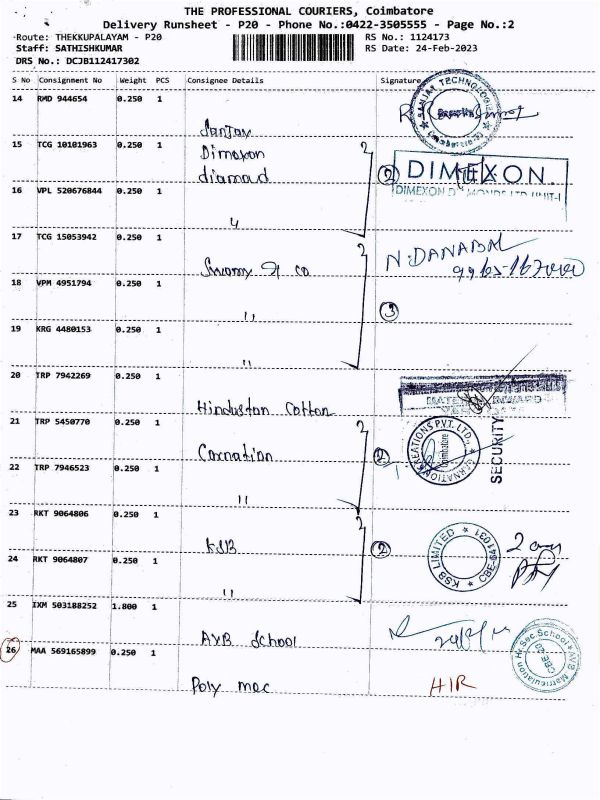 THE PROFESSIONAL COURIERS, Coimbatore
Delivery Runsheet - P20 - Phone No.:0422-3505555 - Page No.:2
Route: THEKKUPALAYAM - P20 RS No.: 1124173
Staff: SATHISHKUMAR RS Date: 24-Feb-2023
DRS No.: DCJB112417302
S No Consignment No Weight PCS Consignee Details Signature
14 RMD 944654 0.250 1
Sanjay
SANJAY TECHNOLOGIES
15 TCG 10101963 0.250 1
Dimexon
diamond
2
DIMEXON
DIMEXON DIAMONDS LTD UNIT-I
16 VPL 520676844 0.250 1
"
17 TCG 15053942 0.250 1
Swamy & co
N. DANABAL
18 VPM 4951794 0.250 1
"
3
19 KRG 4480153 0.250 1
"
20 TRP 7942269 0.250 1
Hindustan Cotton
21 TRP 5450770 0.250 1
Carnation
2
CARNATION CREATIONS PVT. LTD.,
Coimbatore
SECURITY
22 TRP 7946523 0.250 1
"
23 RKT 9064806 0.250 1
KSB
2
KSB LIMITED
CBE-641031
24 RKT 9064807 0.250 1
"
25 IXM 503188252 1.800 1
AVB School
26 MAA 569165899 0.250 1
AVB Matriculation Hr Sec School
Poly mec
HIR